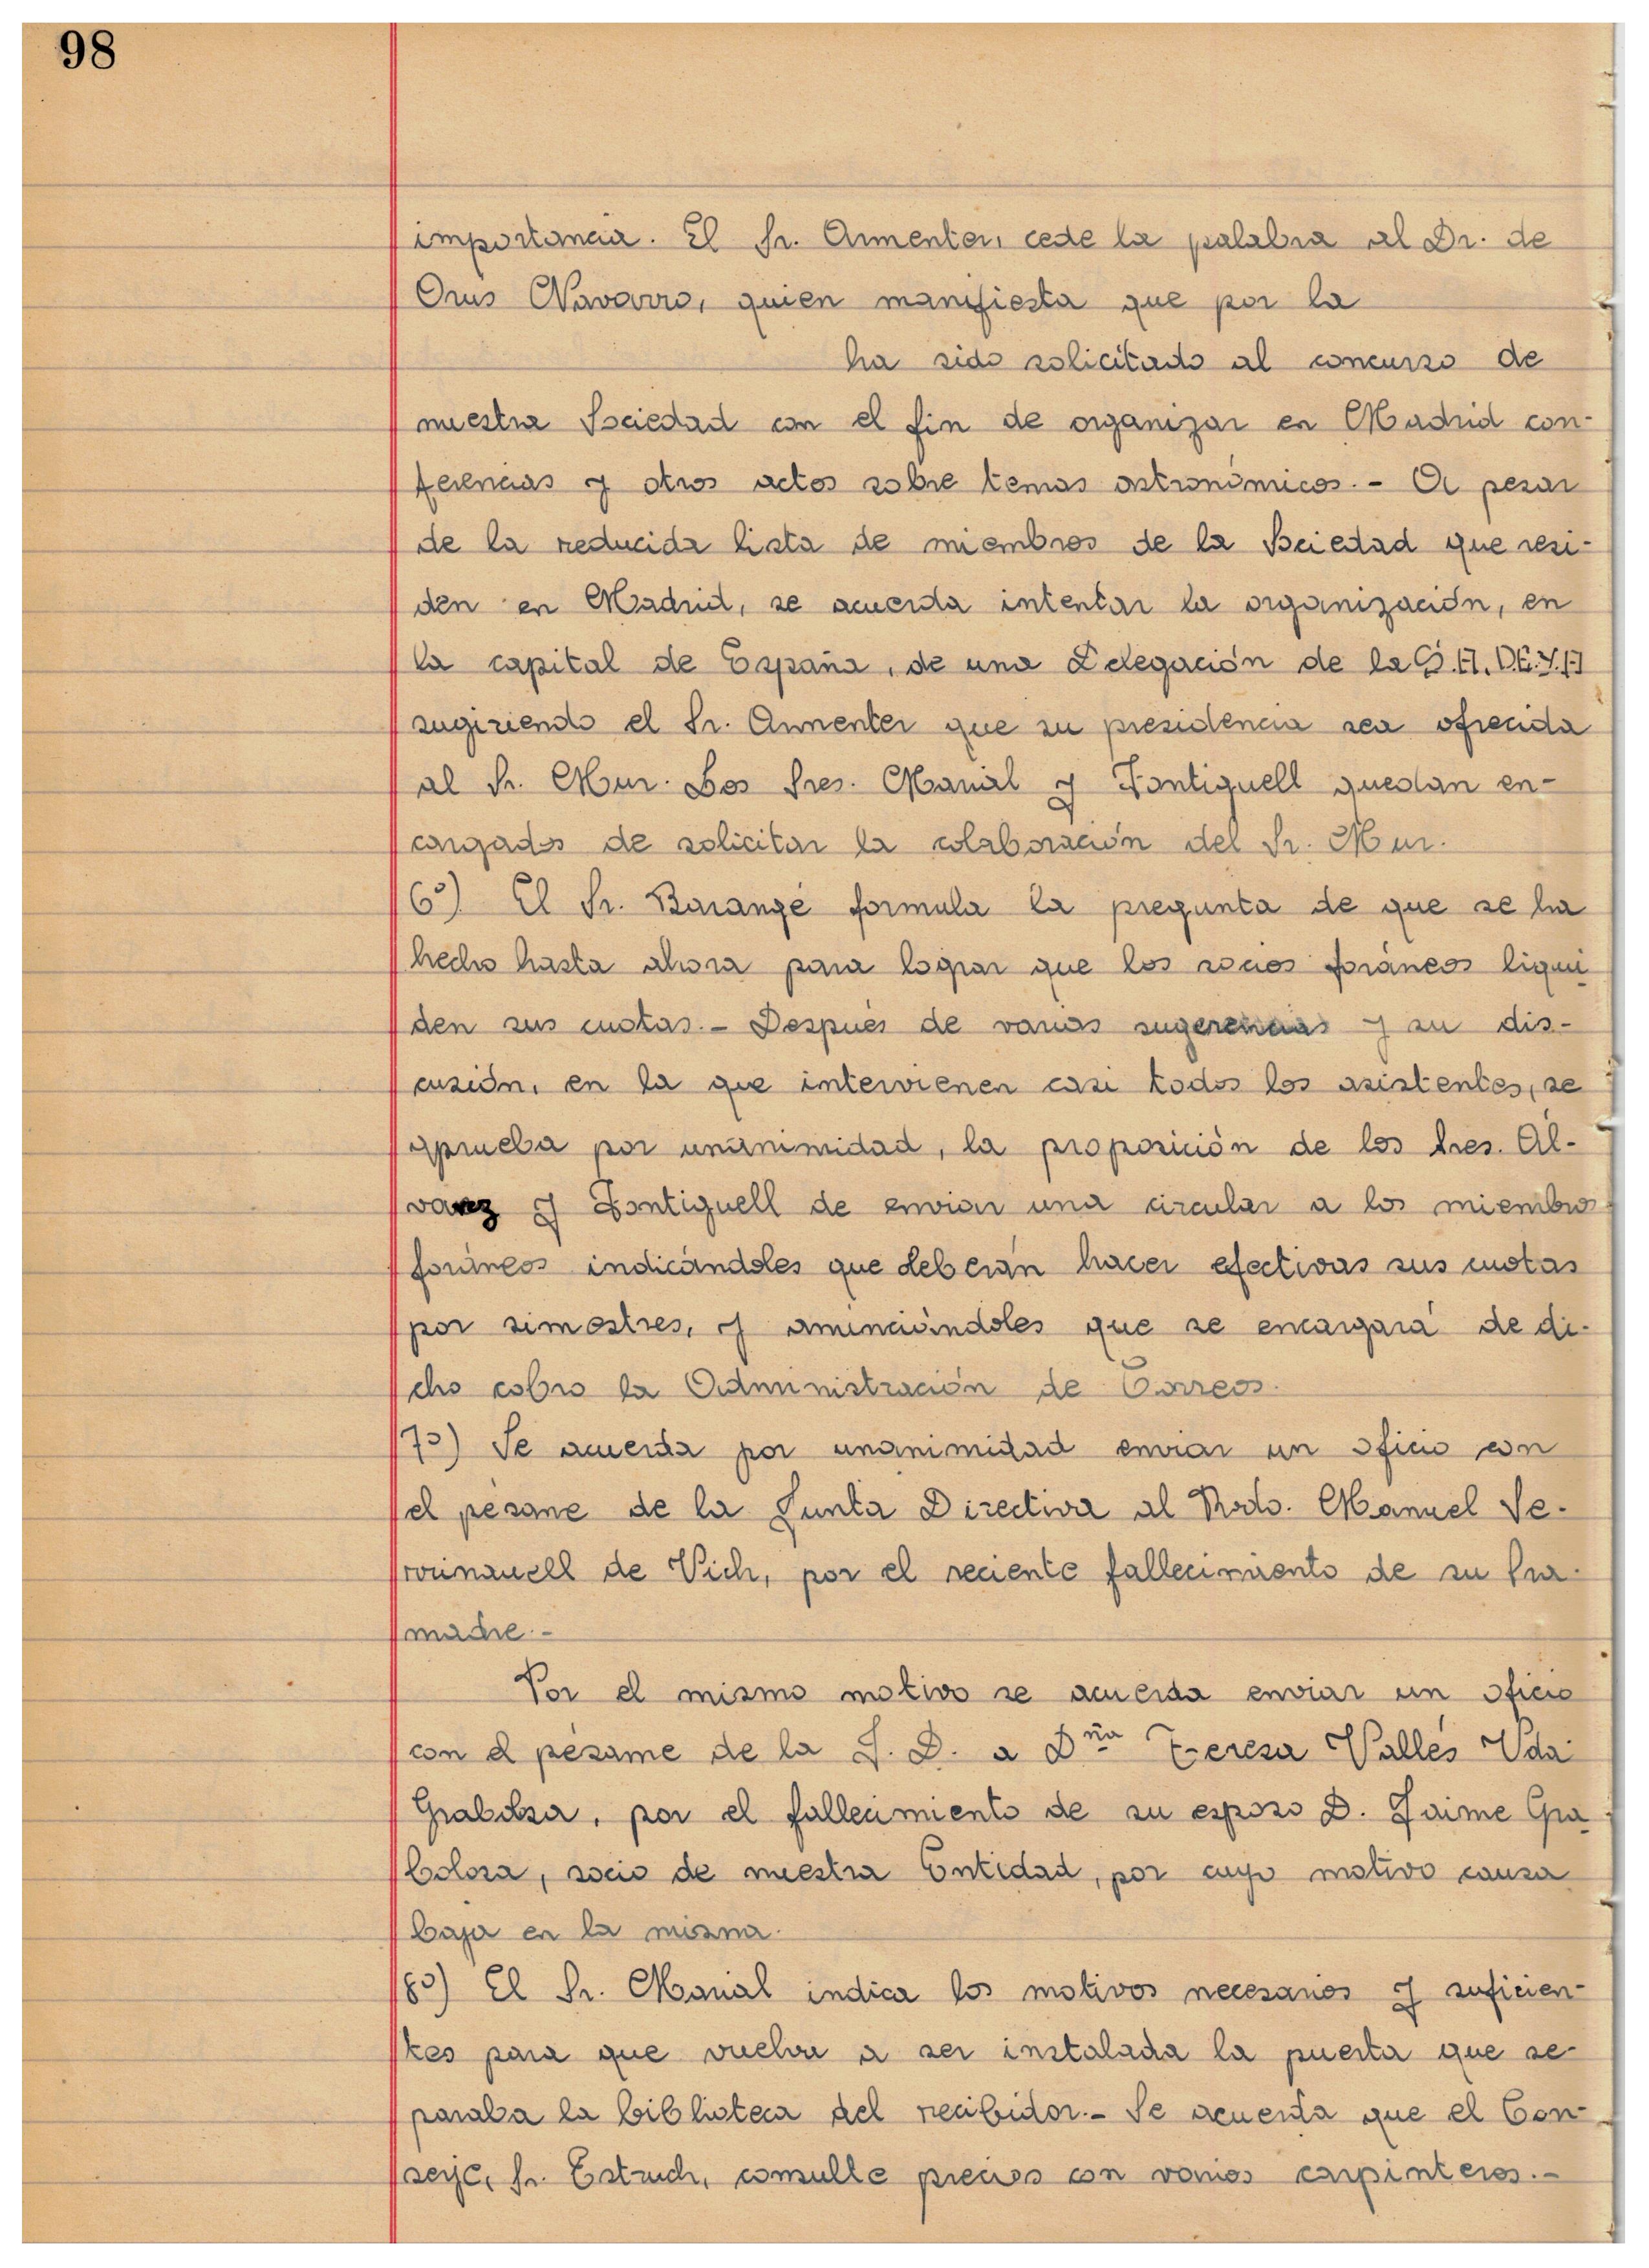 98
importancia. El Sr. Armenter, cede la palabra al Dr. de
Orus Navarro, quien manifiesta que por la
ha sido solicitado al concurso de
nuestra Sociedad con el fin de organizar en Madrid con-
ferencias y otros actos sobre temas astronómicos.- A pesar
de la reducida lista de miembros de la Sociedad que resi-
den en Madrid, se acuerda intentar la organización, en
la capital de España, de una Delegación de la S.A.D.E.Y.A
sugiriendo el Sr. Armenter que su presidencia sea ofrecida
al Sr. Mur. Los Sres. Marial y Fontiguell quedan en-
cargados de solicitar la colaboración del Sr. Mur.
6º) El Sr. Barangé formula la pregunta de que se ha
hecho hasta ahora para lograr que los socios foráneos liqui
den sus cuotas.- Después de varias sugerencias y su dis-
cusión, en la que intervienen casi todos los asistentes, se
aprueba por unanimidad, la proposición de los Sres. Al-
varez y Fontiguell de enviar una circular a los miembros
foráneos indicándoles que deberán hacer efectivas sus cuotas
por simestres, y anunciándoles que se encargará de di-
cho cobro la Administración de Correos.
7º) Se acuerda por unanimidad enviar un oficio con
el pésame de la Junta Directiva al Rvdo. Manuel Se-
de Vich, por el reciente fallecimiento de su Sra.
madre.-
Por el mismo motivo se acuerda enviar un oficio
con el pésame de la J. D. a Dña Teresa Vallés Vda
Grabolosa, por el fallecimiento de su esposo D. Jaime Gra
bolosa, socio de nuestra Entidad, por cuyo motivo causa
baja en la misma.
8º) El Sr. Marial indica los motivos necesarios y suficien-
tes para que vuelva a ser instalada la puerta que se-
paraba la biblioteca del recibidor.- Se acuerda que el Con-
serje, Sr. Estruch, consulte precios con varios carpinteros.-